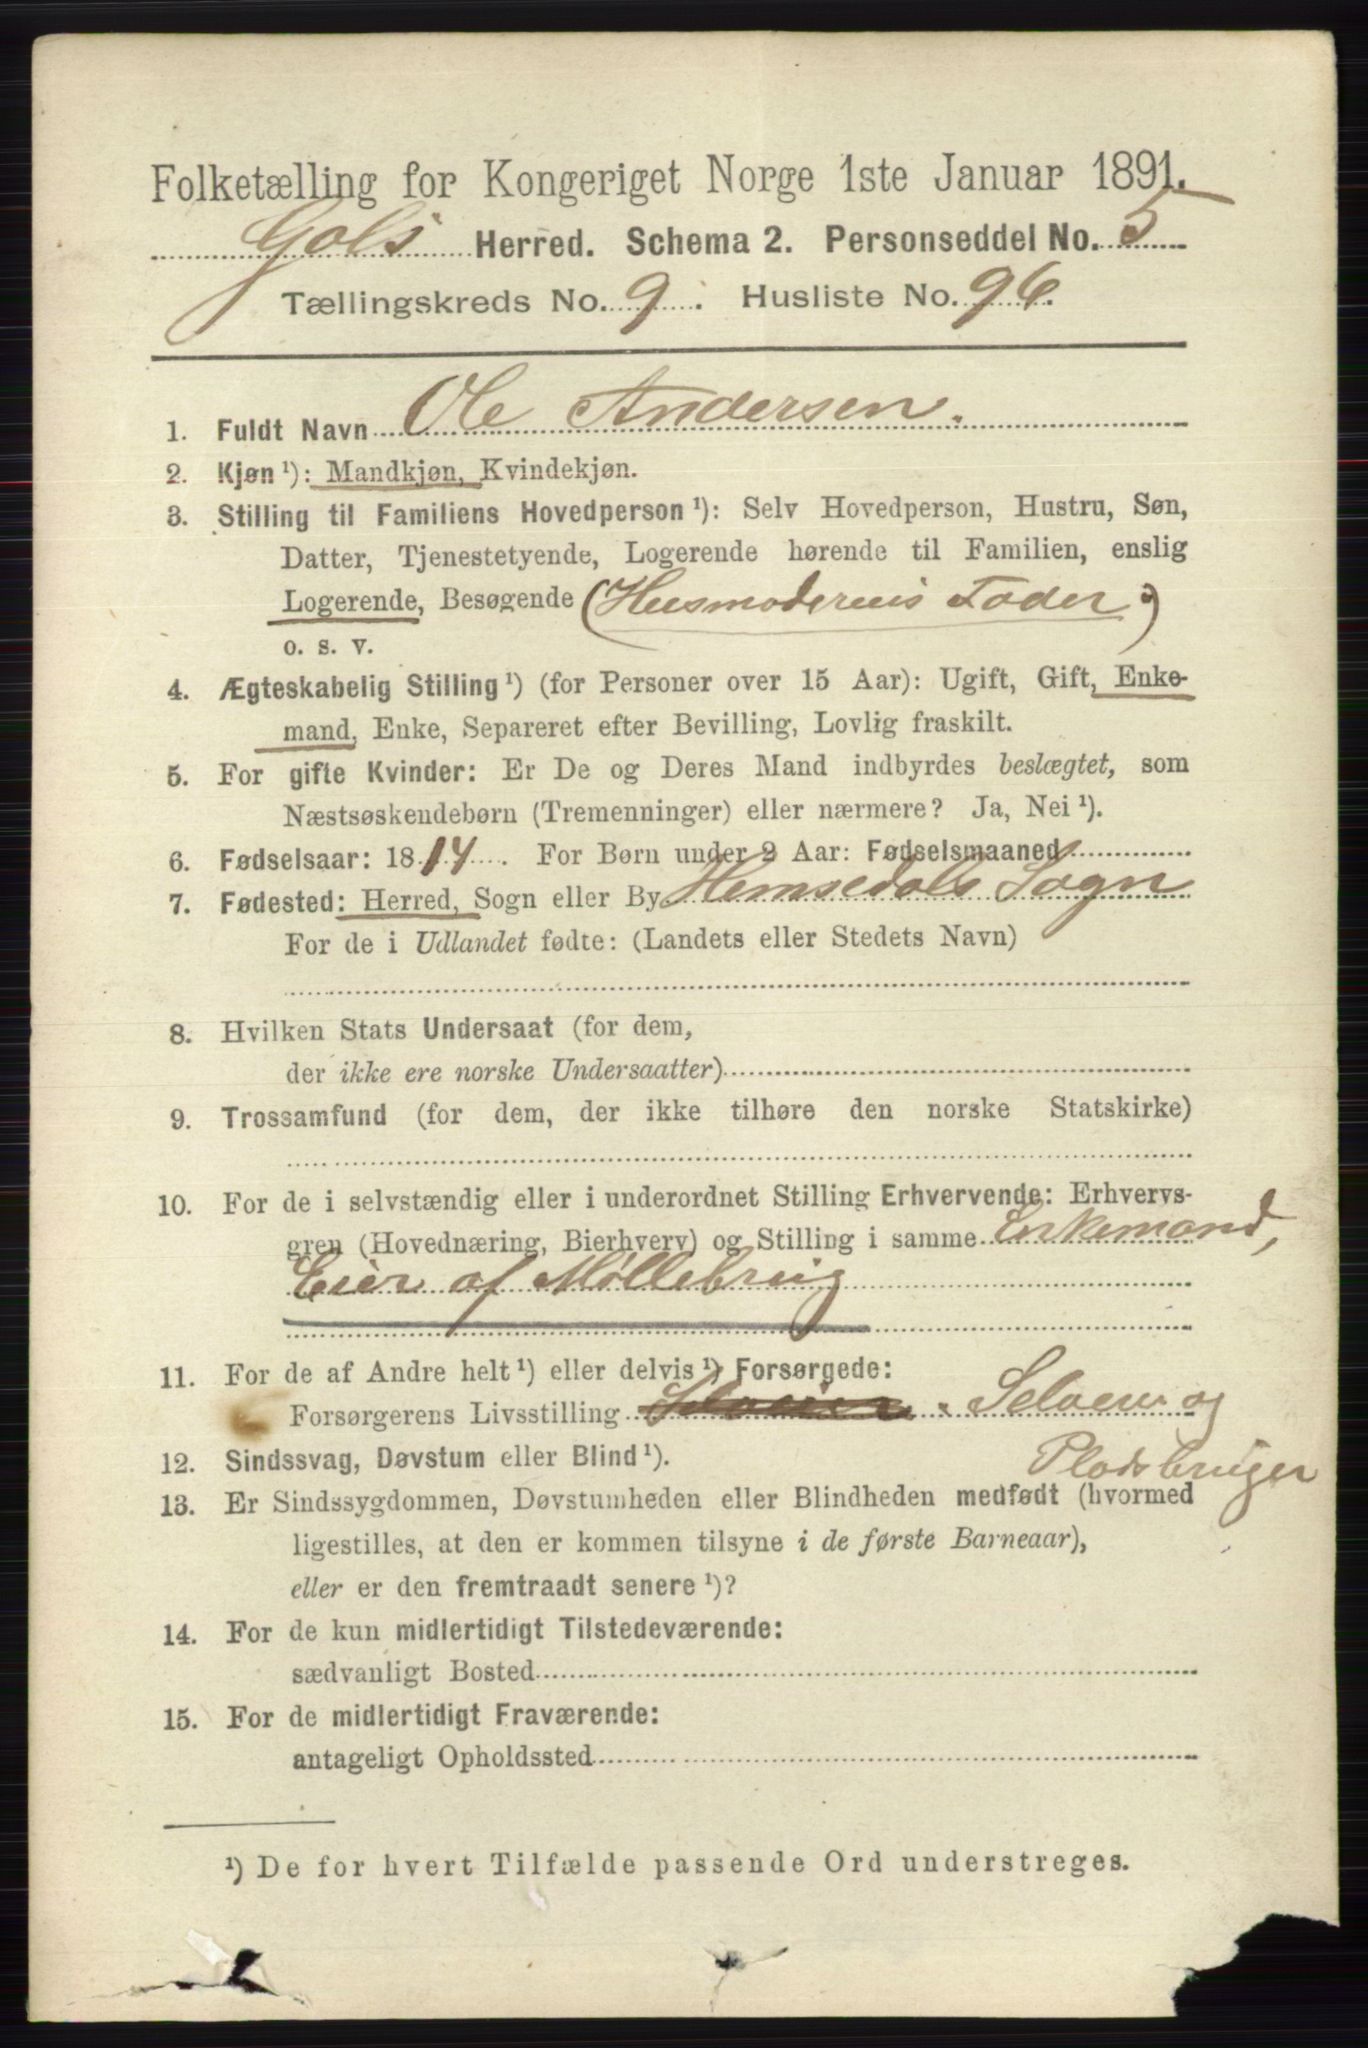 Folketælling for Kongeriget Norge 1ste Januar 1891.
Gols Herred. Schema 2. Personseddel No. 5
Tællingskreds No. 9. Husliste No. 96.
1. Fuldt Navn Ole Andersen.
2. Kjøn ¹): Mandkjøn, Kvindekjøn.
3. Stilling til Familiens Hovedperson ¹): Selv Hovedperson, Hustru, Søn,
Datter, Tjenestetyende, Logerende hørende til Familien, enslig
Logerende, Besøgende (Husmoderens Fader)
o. s. v.
4. Ægteskabelig Stilling ¹) (for Personer over 15 Aar): Ugift, Gift, Enke-
mand, Enke, Separeret efter Bevilling, Lovlig fraskilt.
5. For gifte Kvinder: Er De og Deres Mand indbyrdes beslægtet, som
Næstsøskendebørn (Tremenninger) eller nærmere? Ja, Nei ¹).
6. Fødselsaar: 1814. For Børn under 2 Aar: Fødselsmaaned
7. Fødested: Herred, Sogn eller By Hemsedals Sogn
For de i Udlandet fødte: (Landets eller Stedets Navn)
8. Hvilken Stats Undersaat (for dem,
der ikke ere norske Undersaatter)
9. Trossamfund (for dem, der ikke tilhøre den norske Statskirke)
10. For de i selvstændig eller i underordnet Stilling Erhvervende: Erhvervs-
gren (Hovednæring, Bierhverv) og Stilling i samme Enkemand,
Eier af Møllebrug
11. For de af Andre helt ¹) eller delvis ¹) Forsørgede:
Forsørgerens Livsstilling Selveier. Selveier og
Pladsbruger
12. Sindssvag, Døvstum eller Blind ¹).
13. Er Sindssygdommen, Døvstumheden eller Blindheden medfødt (hvormed
ligestilles, at den er kommen tilsyne i de første Barneaar),
eller er den fremtraadt senere ¹)?
14. For de kun midlertidigt Tilstedeværende:
sædvanligt Bosted
15. For de midlertidigt Fraværende:
antageligt Opholdssted
¹) De for hvert Tilfælde passende Ord understreges.